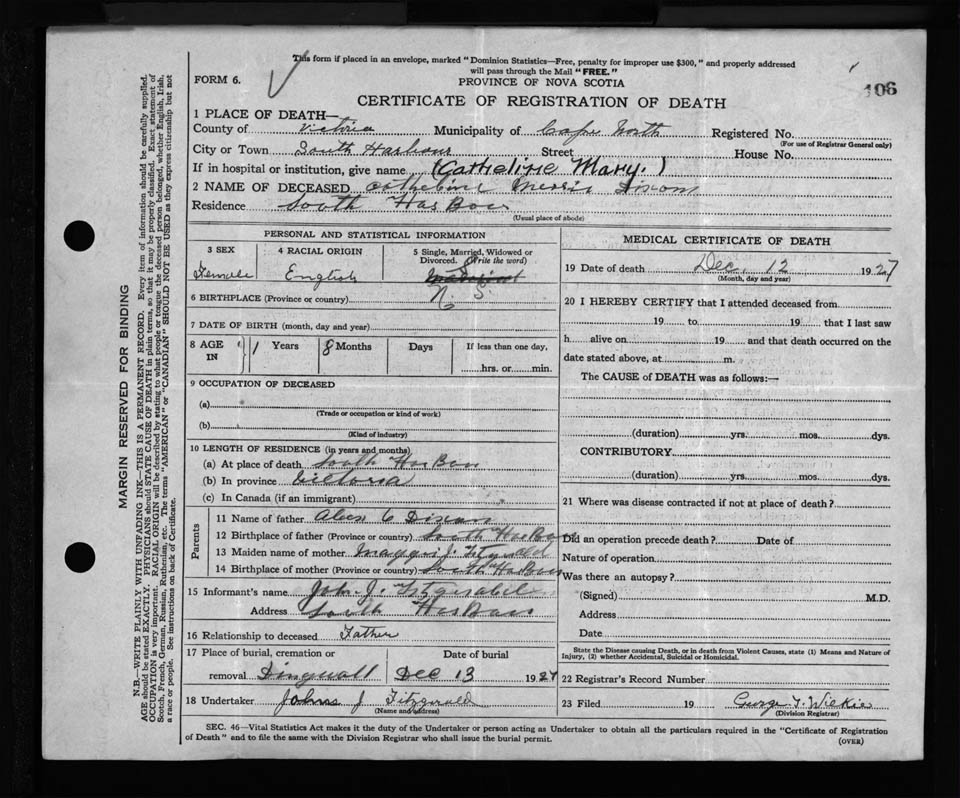 This form if placed in an envelope, marked "Dominion Statistics—Free, penalty for improper use $300," and properly addressed
will pass through the Mail "FREE."
FORM 6.
PROVINCE OF NOVA SCOTIA
106
CERTIFICATE OF REGISTRATION OF DEATH
1 PLACE OF DEATH—
County of Victoria Municipality of Cape North Registered No.
(For use of Registrar General only)
City or Town South Harbour Street House No.
If in hospital or institution, give name (Catherine Mary.)
2 NAME OF DECEASED Catherine Dixon
Residence South Har Bour
(Usual place of abode)
PERSONAL AND STATISTICAL INFORMATION
3 SEX Female
4 RACIAL ORIGIN English
5 Single, Married, Widowed or Divorced. (Write the word) S
6 BIRTHPLACE (Province or country) N. S.
7 DATE OF BIRTH (month, day and year)
8 AGE IN 1 Years 8 Months Days If less than one day,
hrs. or min.
9 OCCUPATION OF DECEASED
(a)
(Trade or occupation or kind of work)
(b)
(Kind of industry)
10 LENGTH OF RESIDENCE (in years and months)
(a) At place of death South Har Bour
(b) In province Victoria
(c) In Canada (if an immigrant)
Parents
11 Name of father Alex
12 Birthplace of father (Province or country) South Har Bour
13 Maiden name of mother Maggie J.
14 Birthplace of mother (Province or country) South Har Bour
15 Informant's name John. J.
Address South Har Bour
16 Relationship to deceased Father
17 Place of burial, cremation or Date of burial
removal Dingwall Dec 13 1927
18 Undertaker John J Fitzgerald
(Name and address)
MEDICAL CERTIFICATE OF DEATH
19 Date of death Dec. 12 1927
(Month, day and year)
20 I HEREBY CERTIFY that I attended deceased from
19 to 19 that I last saw
h alive on 19 and that death occurred on the
date stated above, at m.
The CAUSE of DEATH was as follows:—
(duration) yrs. mos. dys.
CONTRIBUTORY
(duration) yrs. mos. dys.
21 Where was disease contracted if not at place of death?
Did an operation precede death? Date of
Nature of operation
Was there an autopsy?
(Signed) M.D.
Address
Date
State the Disease causing Death, or in death from Violent Causes, state (1) Means and Nature of
Injury, (2) whether Accidental, Suicidal or Homicidal.
22 Registrar's Record Number
23 Filed 19 George T. Wilkie
(Division Registrar)
SEC. 46—Vital Statistics Act makes it the duty of the Undertaker or person acting as Undertaker to obtain all the particulars required in the "Certificate of Registration
of Death" and to file the same with the Division Registrar who shall issue the burial permit.
(OVER)
MARGIN RESERVED FOR BINDING
N.B.—WRITE PLAINLY WITH UNFADING INK—THIS IS A PERMANENT RECORD. Every item of information should be carefully supplied.
AGE should be stated EXACTLY. PHYSICIANS should STATE CAUSE OF DEATH in plain terms, so that it may be properly classified. Exact statement of
OCCUPATION is very important. RACIAL ORIGIN will be described by stating to what people or tongue the deceased person belonged, whether English, Irish,
Scotch, French, German, Russian, Ruthenian, etc. The terms "AMERICAN" or "CANADIAN" SHOULD NOT BE USED as they express citizenship but not
a race or people. See instructions on back of Certificate.